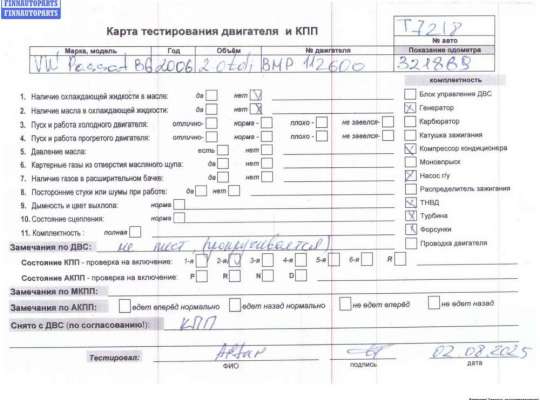 FINNAUTOPARTS
FINNAUTOPARTS
Карта тестирования двигателя и КПП
Т7218
№ авто
Марка, модель Год Объём № двигателя Показание одометра
VW Passat B6 2006 2.0tdi BMP 112600 321889
комплектность
1. Наличие охлаждающей жидкости в масле: да нет
2. Наличие масла в охлаждающей жидкости: да нет
3. Пуск и работа холодного двигателя: отлично- норма - плохо - не завелся-
4. Пуск и работа прогретого двигателя: отлично- норма - плохо - не завелся-
5. Давление масла: есть нет
6. Картерные газы из отверстия масляного щупа: да нет
7. Наличие газов в расширительном бачке: да нет
8. Посторонние стуки или шумы при работе: да нет
9. Дымность и цвет выхлопа: норма
10. Состояние сцепления: норма
11. Комплектность : полная
Блок управления ДВС
Генератор
Карбюратор
Катушка зажигания
Компрессор кондиционера
Моновпрыск
Насос г/у
Распределитель зажигания
ТНВД
Турбина
Форсунки
Проводка двигателя
Замечания по ДВС: не тест, (прокручивается)
Состояние КПП - проверка на включение: 1-я 2-я 3-я 4-я 5-я 6-я R
Состояние АКПП - проверка на включение: P R N D
Замечания по МКПП:
Замечания по АКПП: едет вперёд нормально едет назад нормально не едет вперёд не едет назад
Снято с ДВС (по согласованию!): КПП
Тестировал: 02.08.2025
ФИО подпись дата